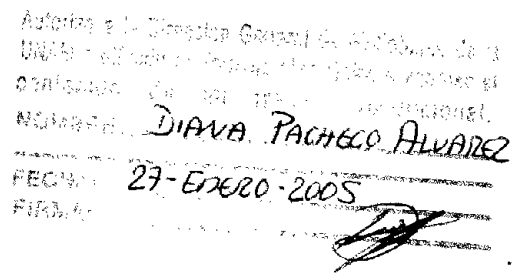 Autorizo a la Dirección General de Bibliotecas de la
UNAM a difundir en formato electrónico e impreso el
contenido de mi trabajo recepcional.
NOMBRE: DIANA PACHECO ALVAREZ
FECHA: 27-ENERO-2005
FIRMA: